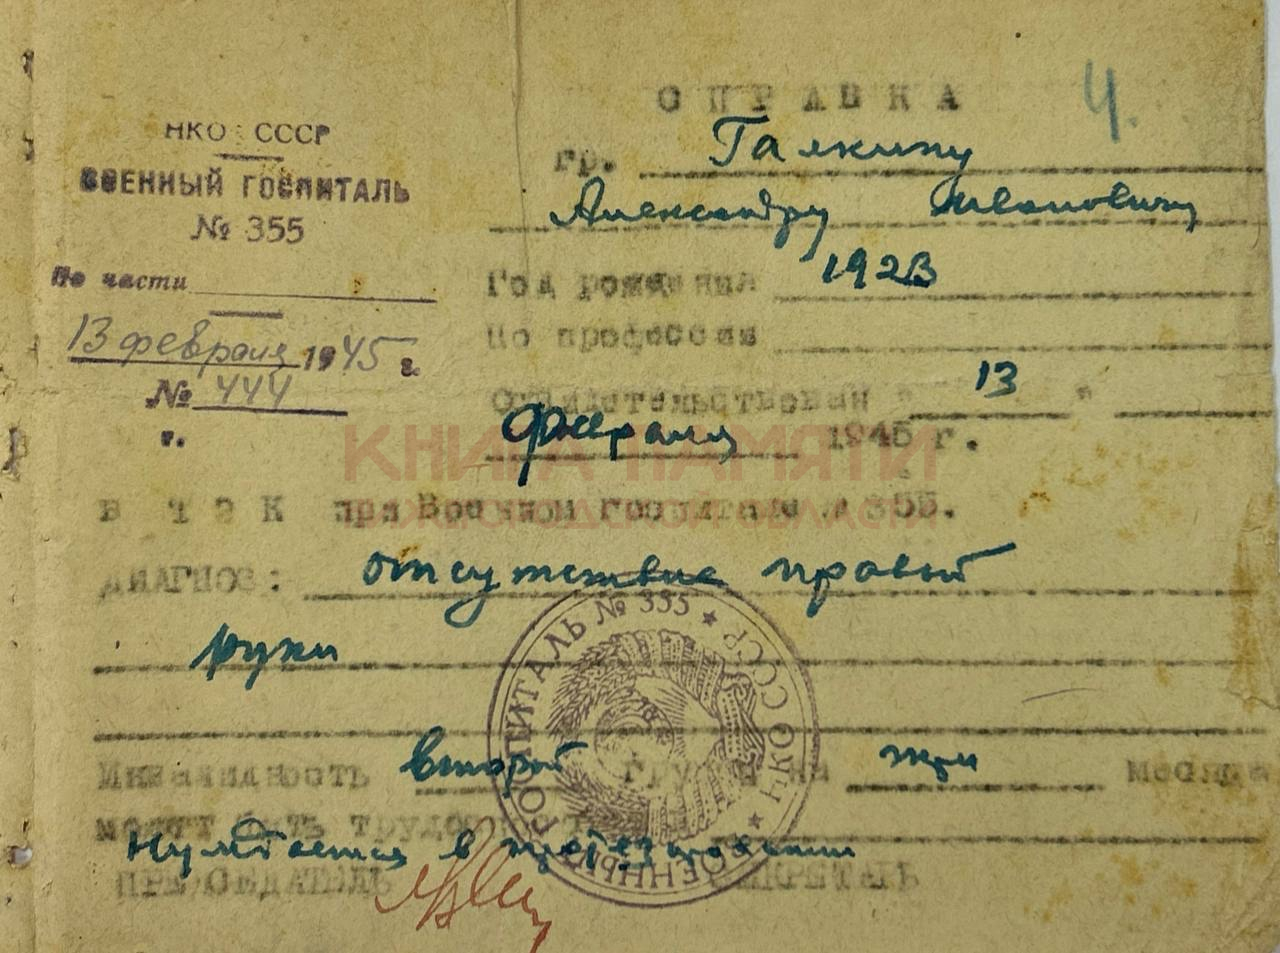 СПРАВКА
4.
НКО СССР
ВОЕННЫЙ ГОСПИТАЛЬ
№ 355
По части
13 февраля 1945 г.
№ 444
г.
гр. Галкину
Александру Ивановичу
Год рождения 1923
По профессии
Освидетельствован " 13 "
февраля 1945 г.
КНИГА ПАМЯТИ
НИЖЕГОРОДСКОЙ ОБЛАСТИ
в ТЭК при Военном госпитале № 355.
ДИАГНОЗ: отсутствие правой
руки
Инвалидность второй группы на три месяца
может быть
Нуждается в протезировании
ПРЕДСЕДАТЕЛЬ СЕКРЕТАРЬ
ВОЕННЫЙ ГОСПИТАЛЬ № 355 ★ НКО СССР ★